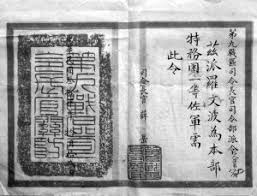 第九戰區司令長官司令部派令
茲派羅文波為本部
特務團一等佐軍需
此令
司令長官 薛岳